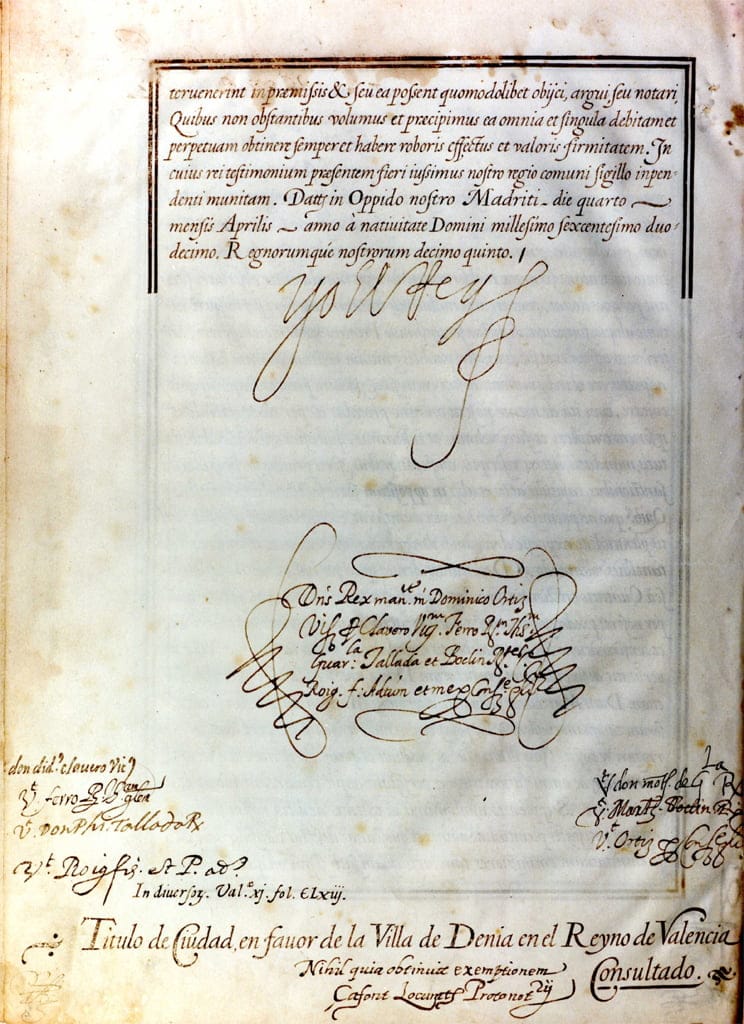 teruenerint in præmissis & seu ea possent quomodolibet obijci, argui seu notari,
Quibus non obstantibus volumus et præcipimus ea omnia et singula debitam et
perpetuam obtinere semper et habere roboris effectus et valoris firmitatem. In
cuius rei testimonium præsentem fieri iussimus nostro regio comuni sigillo inpen-
denti munitam. Datts in Oppido nostro Madriti die quarto
mensis Aprilis anno à natiuitate Domini millesimo sexcentesimo duo-
decimo. Regnorumque nostrorum decimo quinto.
yo el Rey
Dns Rex man.te m Dominico Ortiz
Vis. Clavero Vig. Ferro
Guar: Tallada et Boclin
Roig. f:
don did.o clauero Vic
Vt ferro
Vt don mots. de
Vt Marts. Boclin
V. Don Phi. Tallada
Vt Ortiz
Vt Roig fis. et P. ad.
In diuersoz. Val.e xj. fol. CLxiij.
Titulo de Ciudad, en fauor de la Villa de Denia en el Reyno de Valencia
Nihil quia obtinuit exemptionem
Consultado.